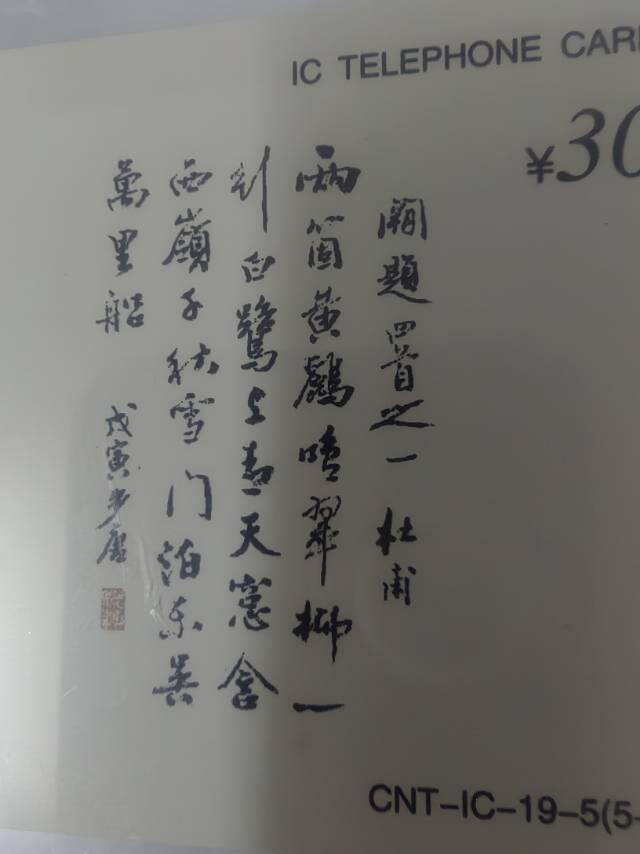 IC TELEPHONE CAR
¥30
題四首之一 杜甫
兩箇黃鸝鳴翠柳一
行白鷺上青天窓含
西嶺千秋雪门泊東吳
萬里船 戊寅
CNT-IC-19-5(5-